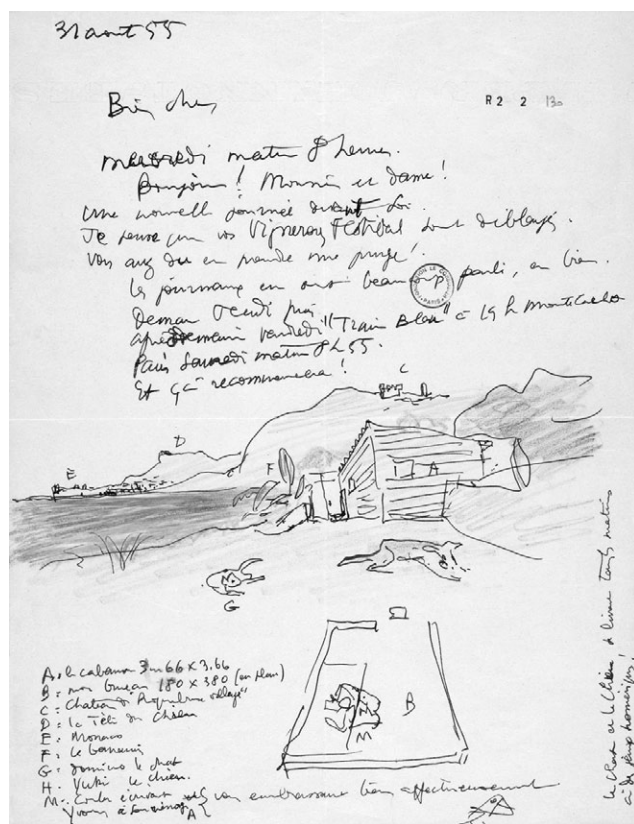 31 aout 55
R2 2 130
Bien chers
mercredi matin 8 heures.
Bonjour ! Monsieur et dame !
une nouvelle journée devant soi.
Je pense que vos Festival sont
Vous avez du en prendre une
Les journaux en ont beaucoup parlé, en bien.
Demain jeudi
après demain vendredi "Train Bleu" à 19 h Monte Carlo
Paris Samedi matin 8 h 55.
Et ça recommencera !
C
D
E
F
A
G
B
M
A = le cabanon 3m66 x 3.66
B = mon bureau 180 x 380 (en plan)
C = Chateau de Roquebrune village
D = la Tête du Chien
E = Monaco
F = le bananier
G = domino le chat
H. Yuki le chien.
M = Corbu écrivant et vous embrassant bien affectueusement
Yvonne à son ménage A
le chat et le chien tous les matins
à des jeux !